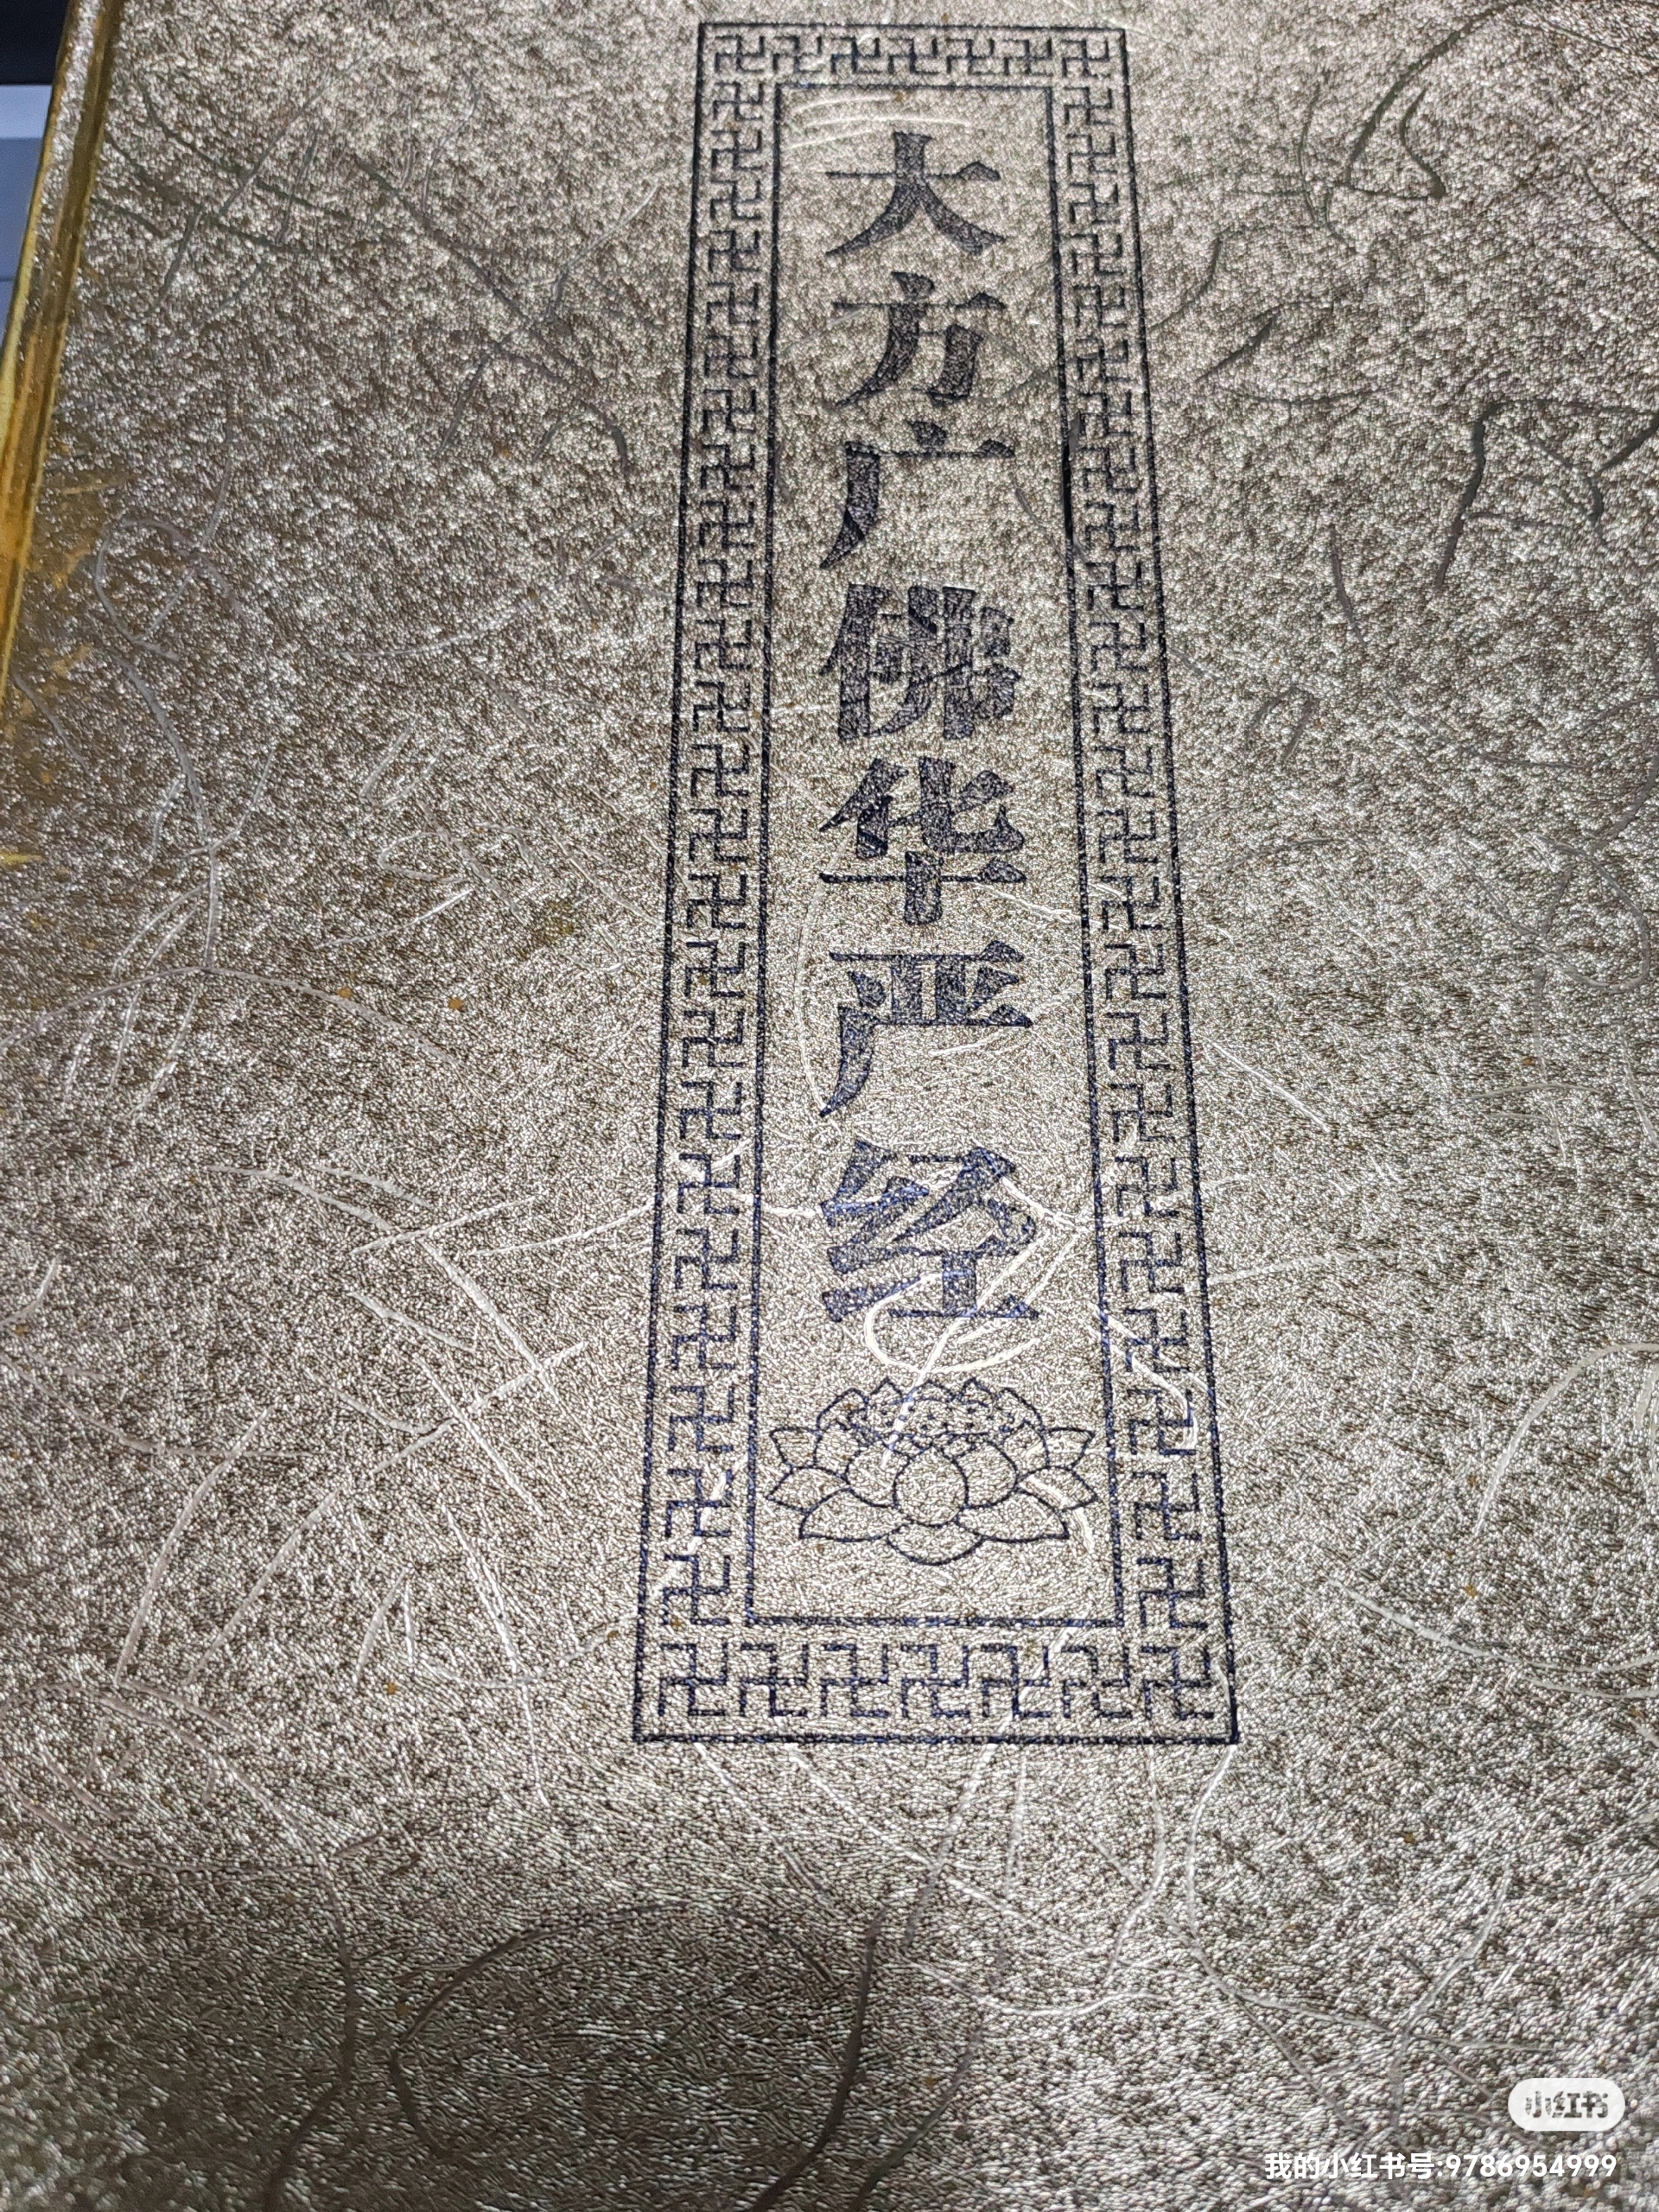 大方广佛华严经
小红书
我的小红书号:9786954999